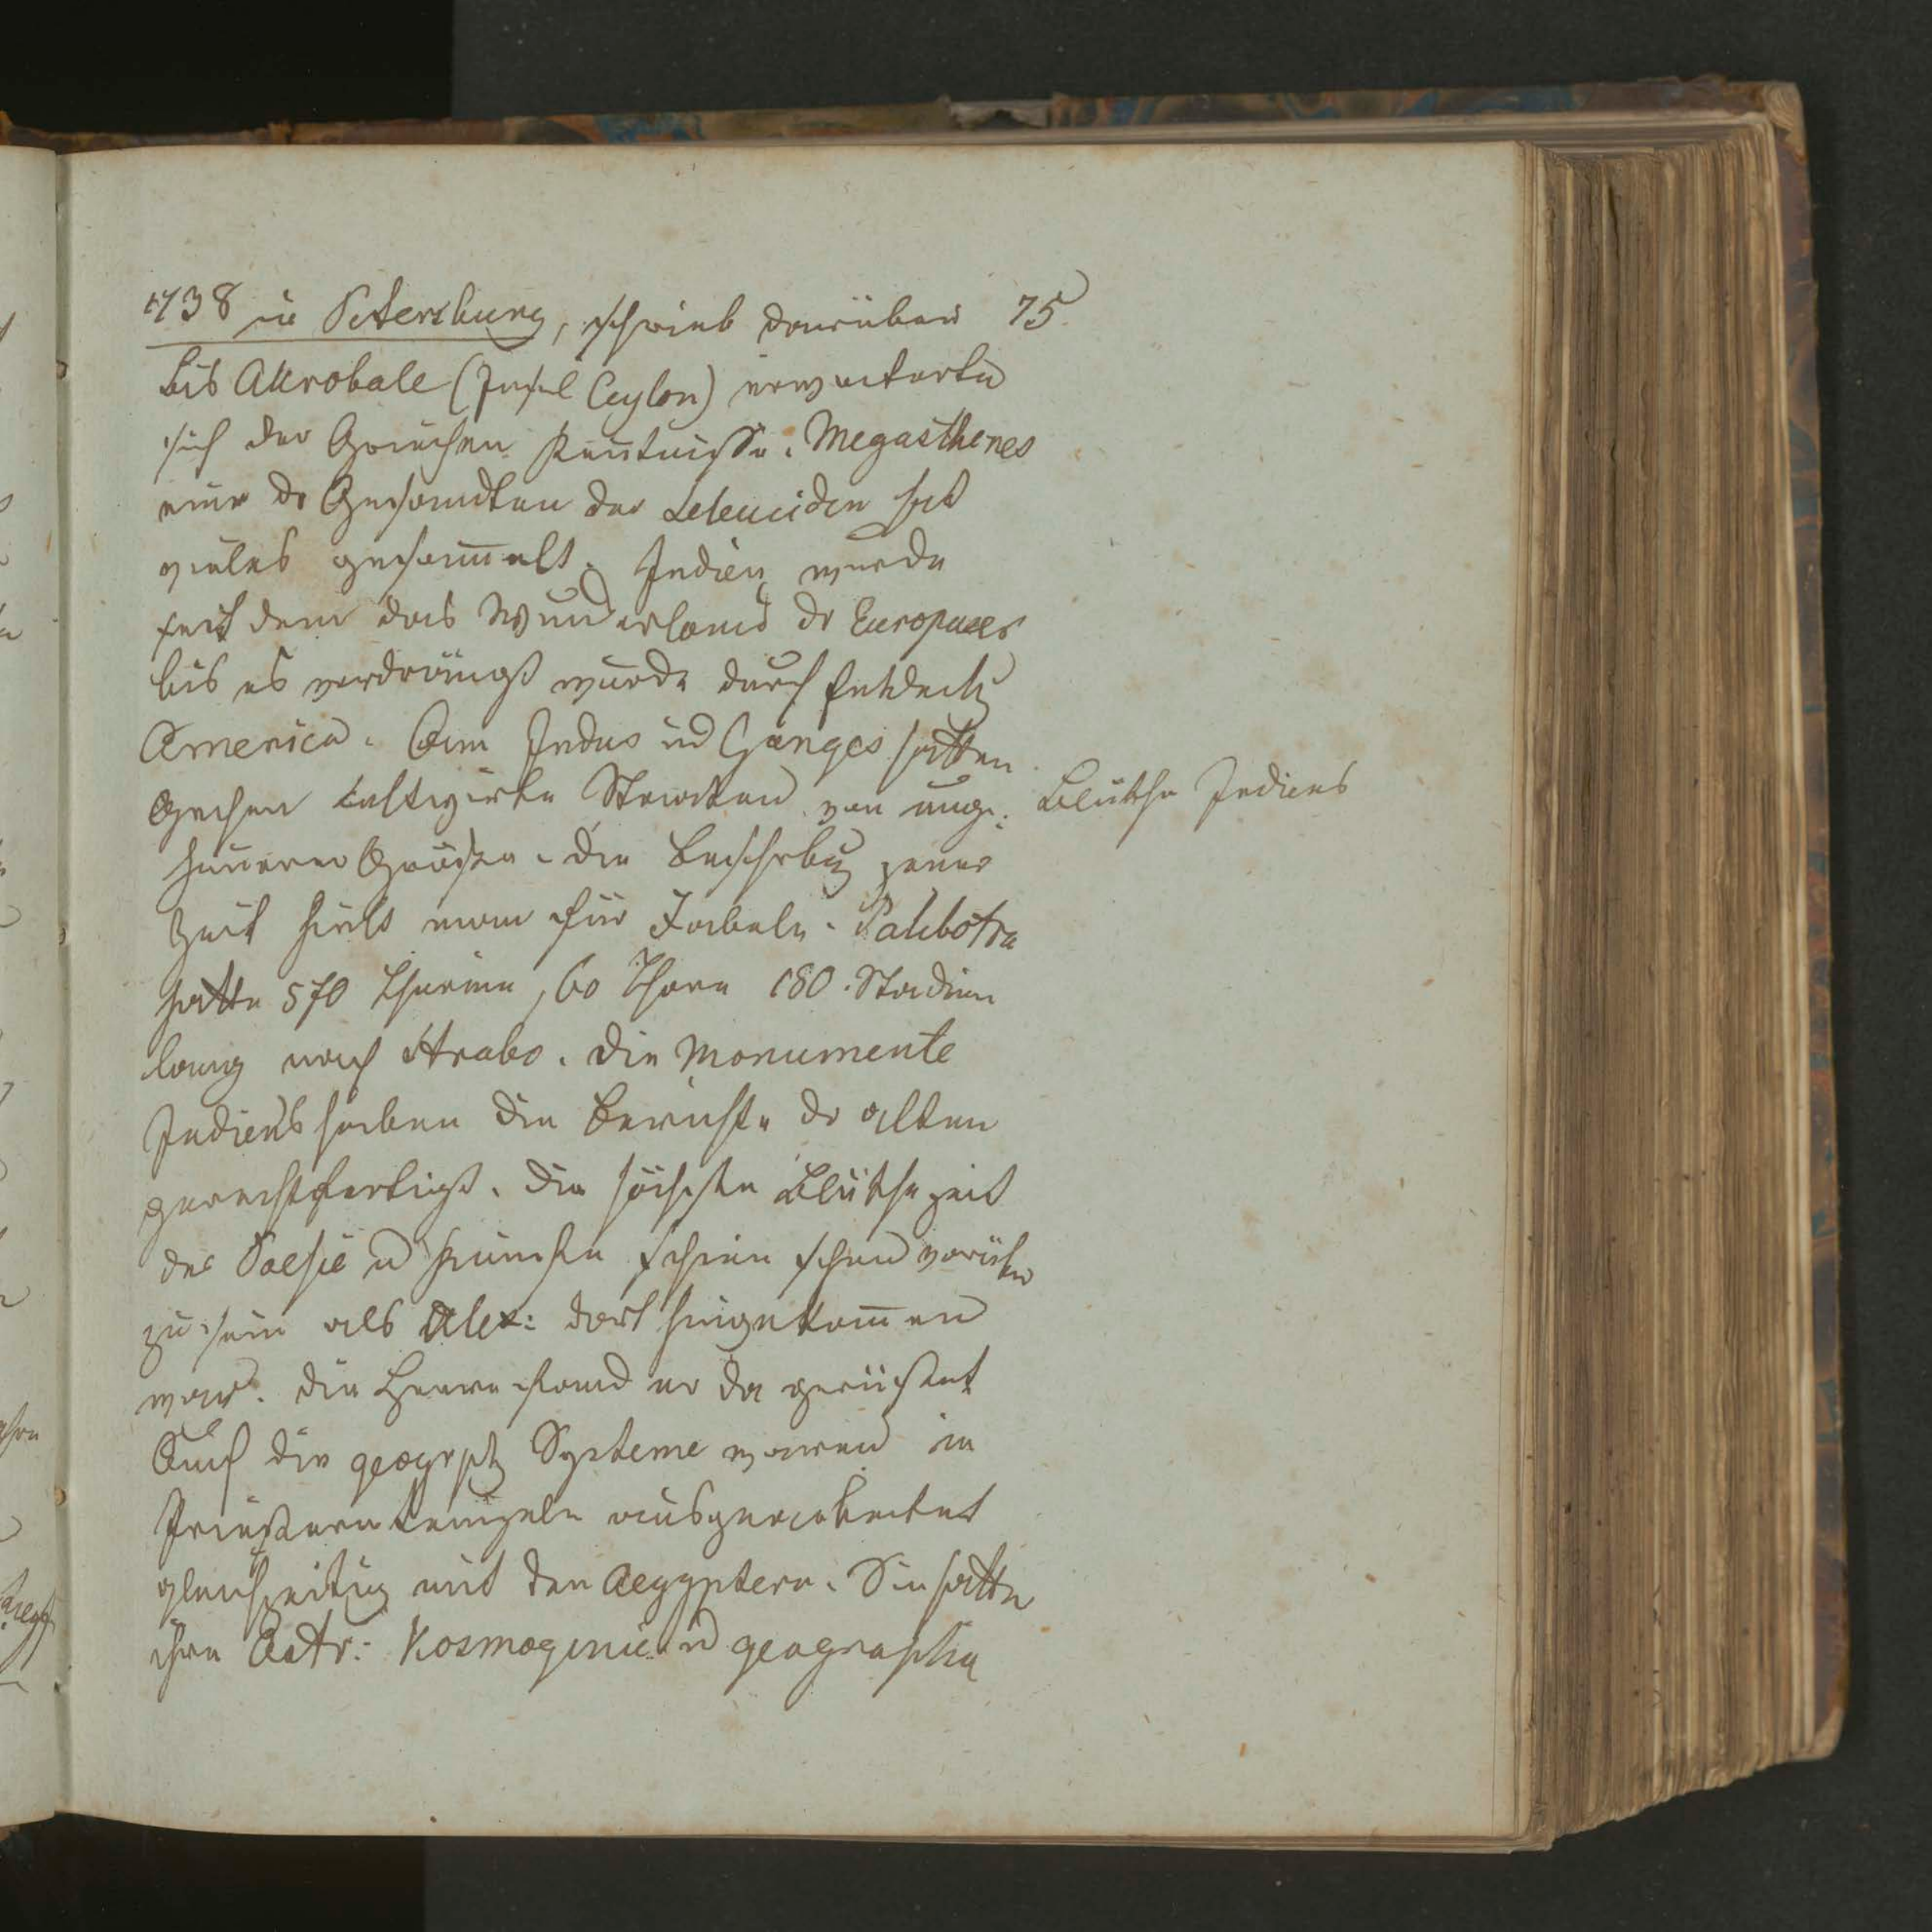 1738 in Petersburg, schrieb darüber 75
bis Akrobale (Insel Ceylon) erweiterten
sich der Griechen Kentnisse. Megasthenes
einer dr Gesandten der Seleuciden hat
vieles gesam̄elt. Indien wurde
seit dem das Wunderland dr Europaeer
bis es verdrängt wurde durch Entdeck
America. Am Indus ud Ganges hatten
Gechen kultivirte Staaten von unge:
Blüthe Indiens
heuerer Grösse. die Beschrbg jener
Zeit hielt man für Fabeln. Palibotra
hatte 570 Thürme, 60 Thore 180. Stadien
lang nach Strabo. die Monumente
Indiens haben die Berichte dr alten
gerechtfertigt. die höchste Blüthe zeit
der Poesie u Künste schien schon vorüber
zu sein als Alex: dort hingekom̄en
war. die Heere fand er da gerüstet
Auch die geogrph Systeme waren in
Priester ausgearbeitet
gleichzeitig mit den Aegyptern. Sie hatte
ihre Astr: Kosmogenie u geographie